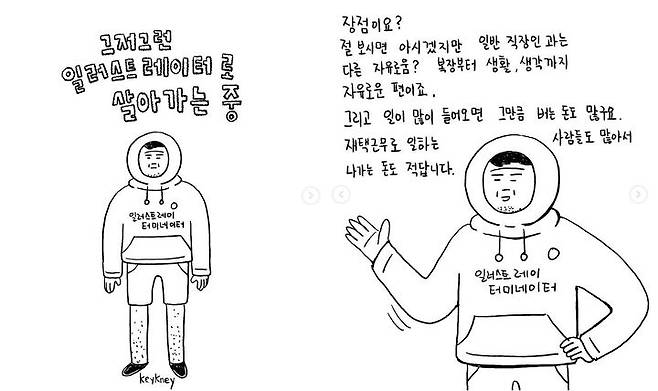 그저그런
일러스트레이터로
살아가는 중
일러스트레이
터미네이터
keykney
장점이요?
절 보시면 아시겠지만 일반 직장인과는
다른 자유로움? 복장부터 생활, 생각까지
자유로운 편이죠.
그리고 일이 많이 들어오면 그만큼 버는 돈도 많구요.
재택근무로 일하는 사람들도 많아서
나가는 돈도 적답니다.
일러스트레이
터미네이터